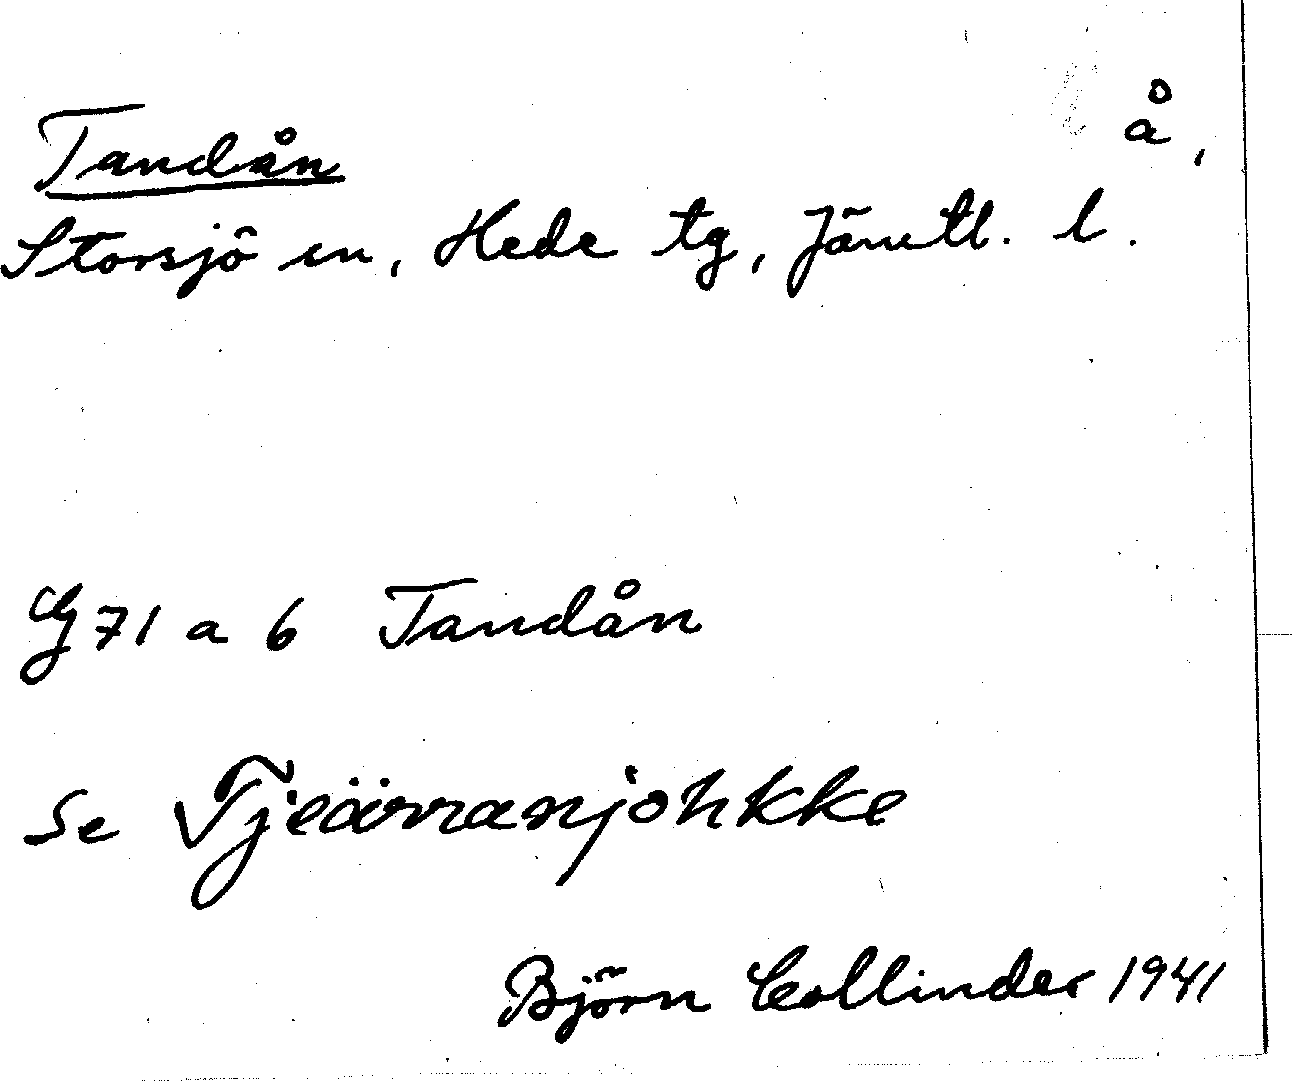 å,
Tandån
Storsjö sn, Hede tg, Jämtl. l.
G 71 a 6 Tandån
Se Tjeärranjohkke
Björn Collinder 1941